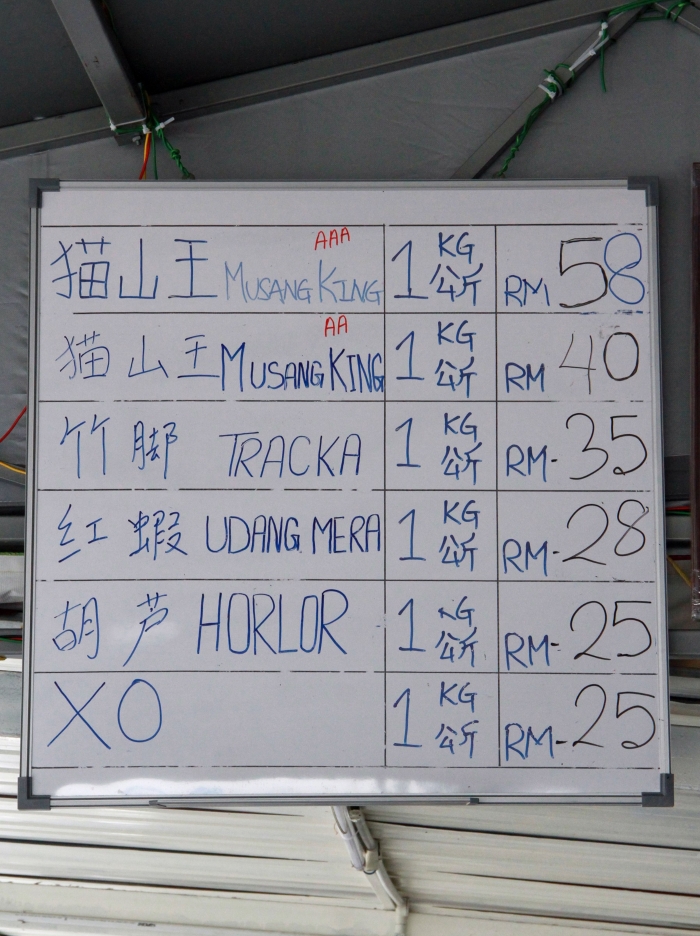 AAA
猫山王 MUSANG KING 1 KG 公斤 RM 58
AA
猫山王 MUSANG KING 1 KG 公斤 RM 40
竹脚 TRACKA 1 KG 公斤 RM-35
红蝦 UDANG MERA 1 KG 公斤 RM-28
胡芦 HORLOR 1 KG 公斤 RM-25
XO 1 KG 公斤 RM-25